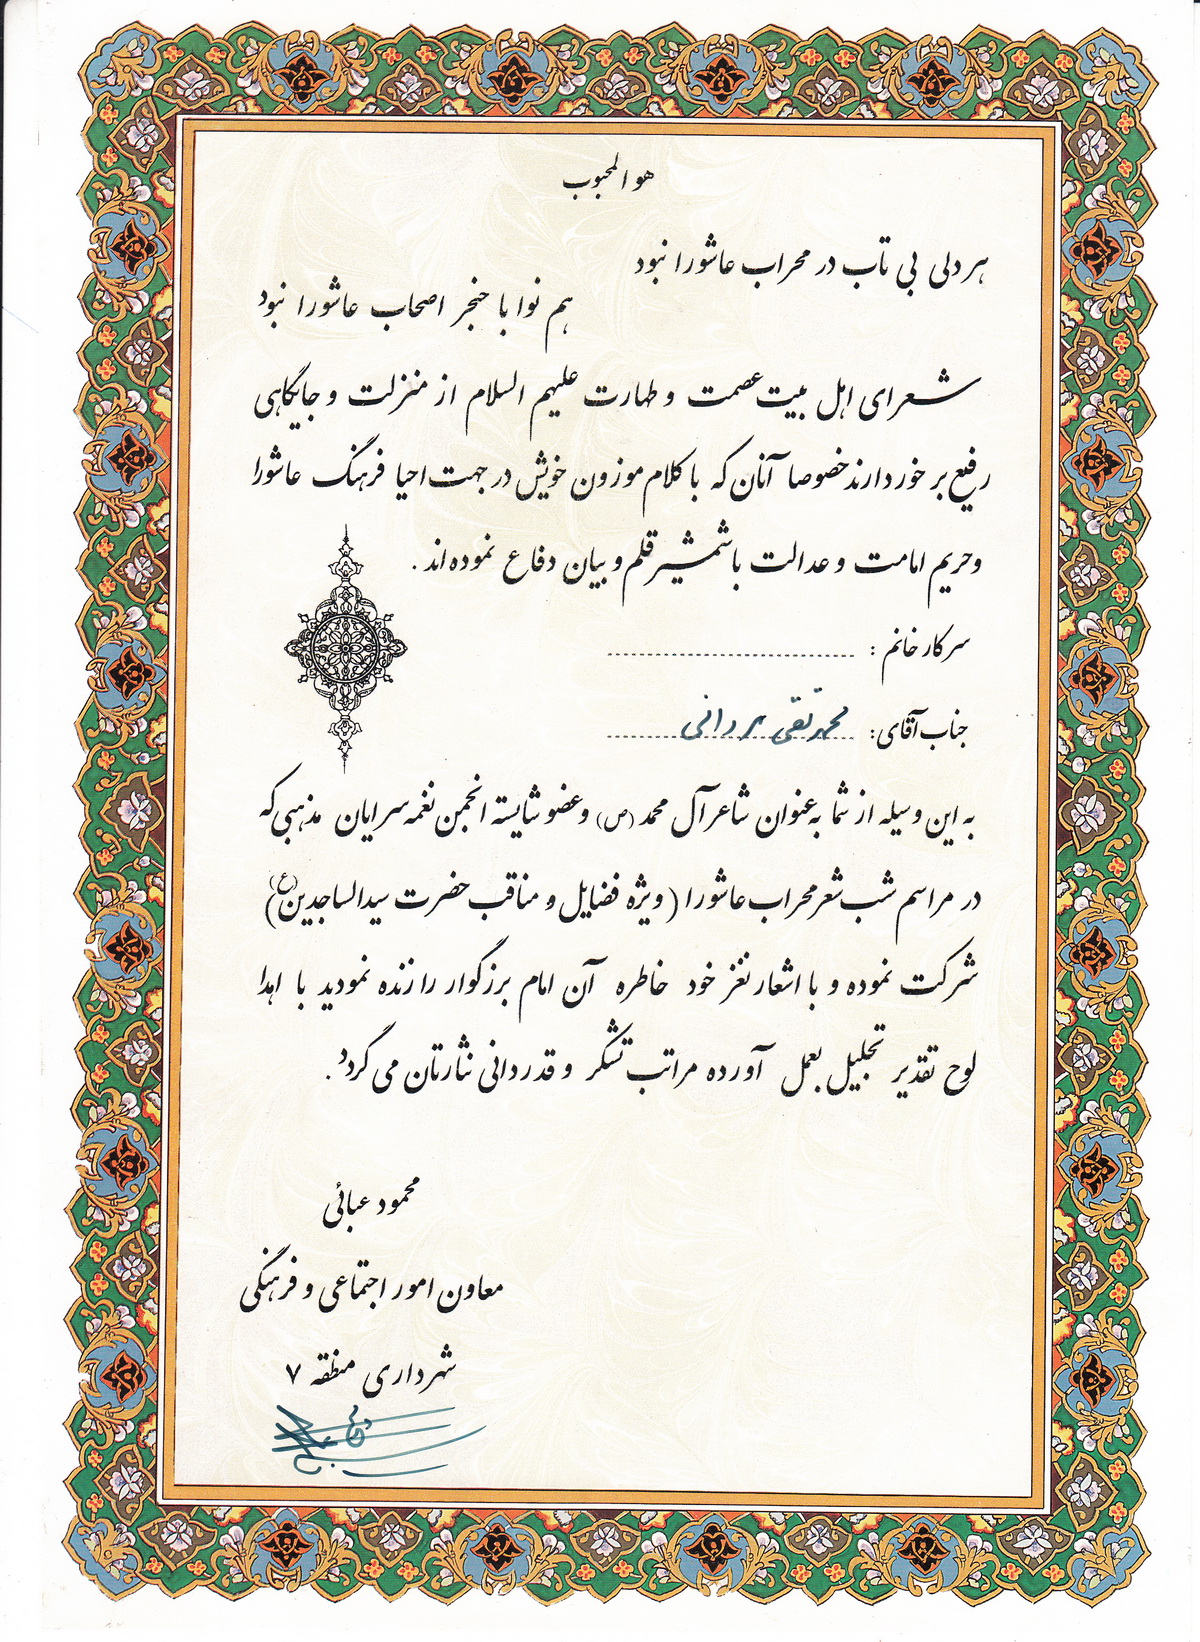 هو المحبوب
هر دلی بی تاب در محراب عاشورا نبود
هم نوا با خنجر اصحاب عاشورا نبود
شعرای اهل بیت عصمت و طهارت علیهم السلام از منزلت و جایگاهی
رفیع برخوردارند خصوصا آنان که با کلام موزون خویش در جهت احیا فرهنگ عاشورا
و حریم امامت و عدالت با شمشیر قلم و بیان دفاع نموده اند .
سرکار خانم :
جناب آقای: محمدتقی مردانی
به این وسیله از شما به عنوان شاعر آل محمد (ص) و عضو شایسته انجمن نغمه سرایان مذهبی که
در مراسم شب شعر محراب عاشورا ( ویژه فضایل و مناقب حضرت سیدالساجدین(ع) )
شرکت نموده و با اشعار نغز خود خاطره آن امام بزرگوار را زنده نمودید با اهدا
لوح تقدیر تجلیل بعمل آورده مراتب تشکر و قدردانی نثارتان می گردد .
محمود عبائی
معاون امور اجتماعی و فرهنگی
شهرداری منطقه ۷